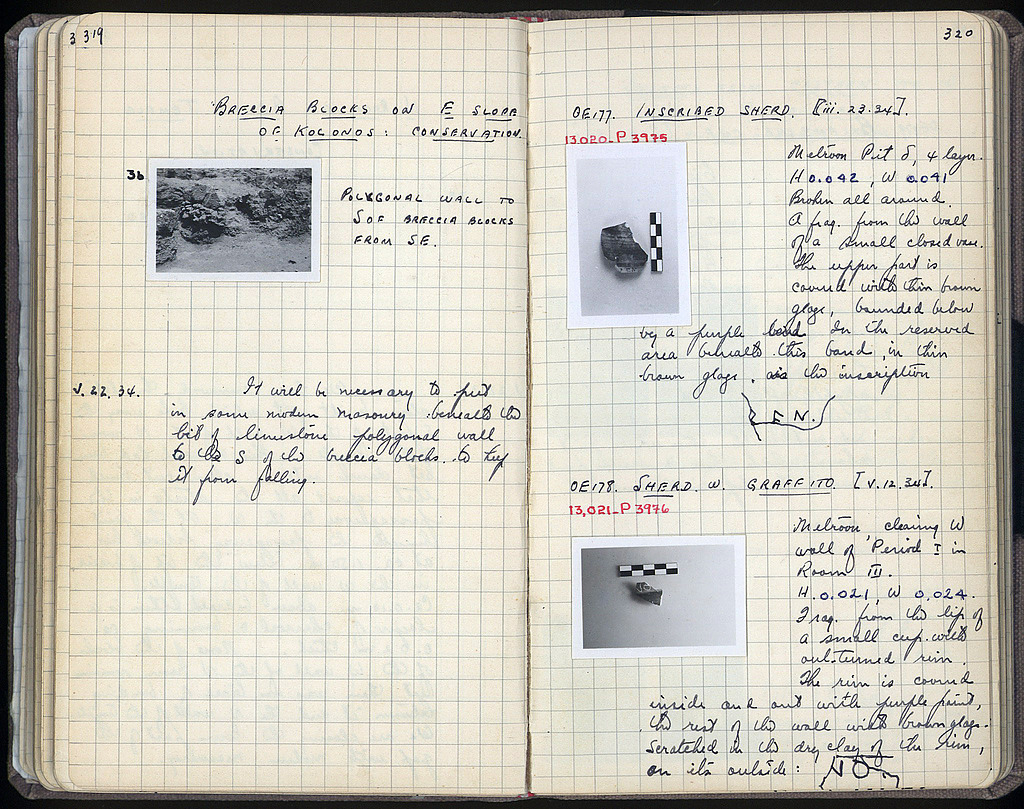 3 319
BRECCIA BLOCKS ON E SLOPE
OF KOLONOS: CONSERVATION.
36
POLYGONAL WALL TO
S OF BRECCIA BLOCKS
FROM SE.
V. 22. 34.
It will be necessary to put
in some modern masonry beneath the
bit of limestone polygonal wall
to the S of the breccia blocks to keep
it from falling.
320
OE177. INSCRIBED SHERD. [iii. 23.34].
13,020-P 3975
Metroon Pit δ, 4 layer.
H 0.042, W 0.041
Broken all around.
A frag. from the wall
of a small closed vase.
The upper part is
covered with thin brown
glaze, bounded below
by a purple band. In the reserved
area beneath this band, in thin
brown glaze, the inscription
EN.
OE178. SHERD W. GRAFFITO [V.12.34].
13,021-P 3976
Metroon clearing W
wall of Period I in
Room III.
H. 0.021, W 0.024.
Frag. from the lip of
a small cup with
out-turned rim.
The rim is covered
inside and out with purple paint,
the rest of the wall with brown glaze.
Scratched in the dry clay of the rim,
on its outside:
NO